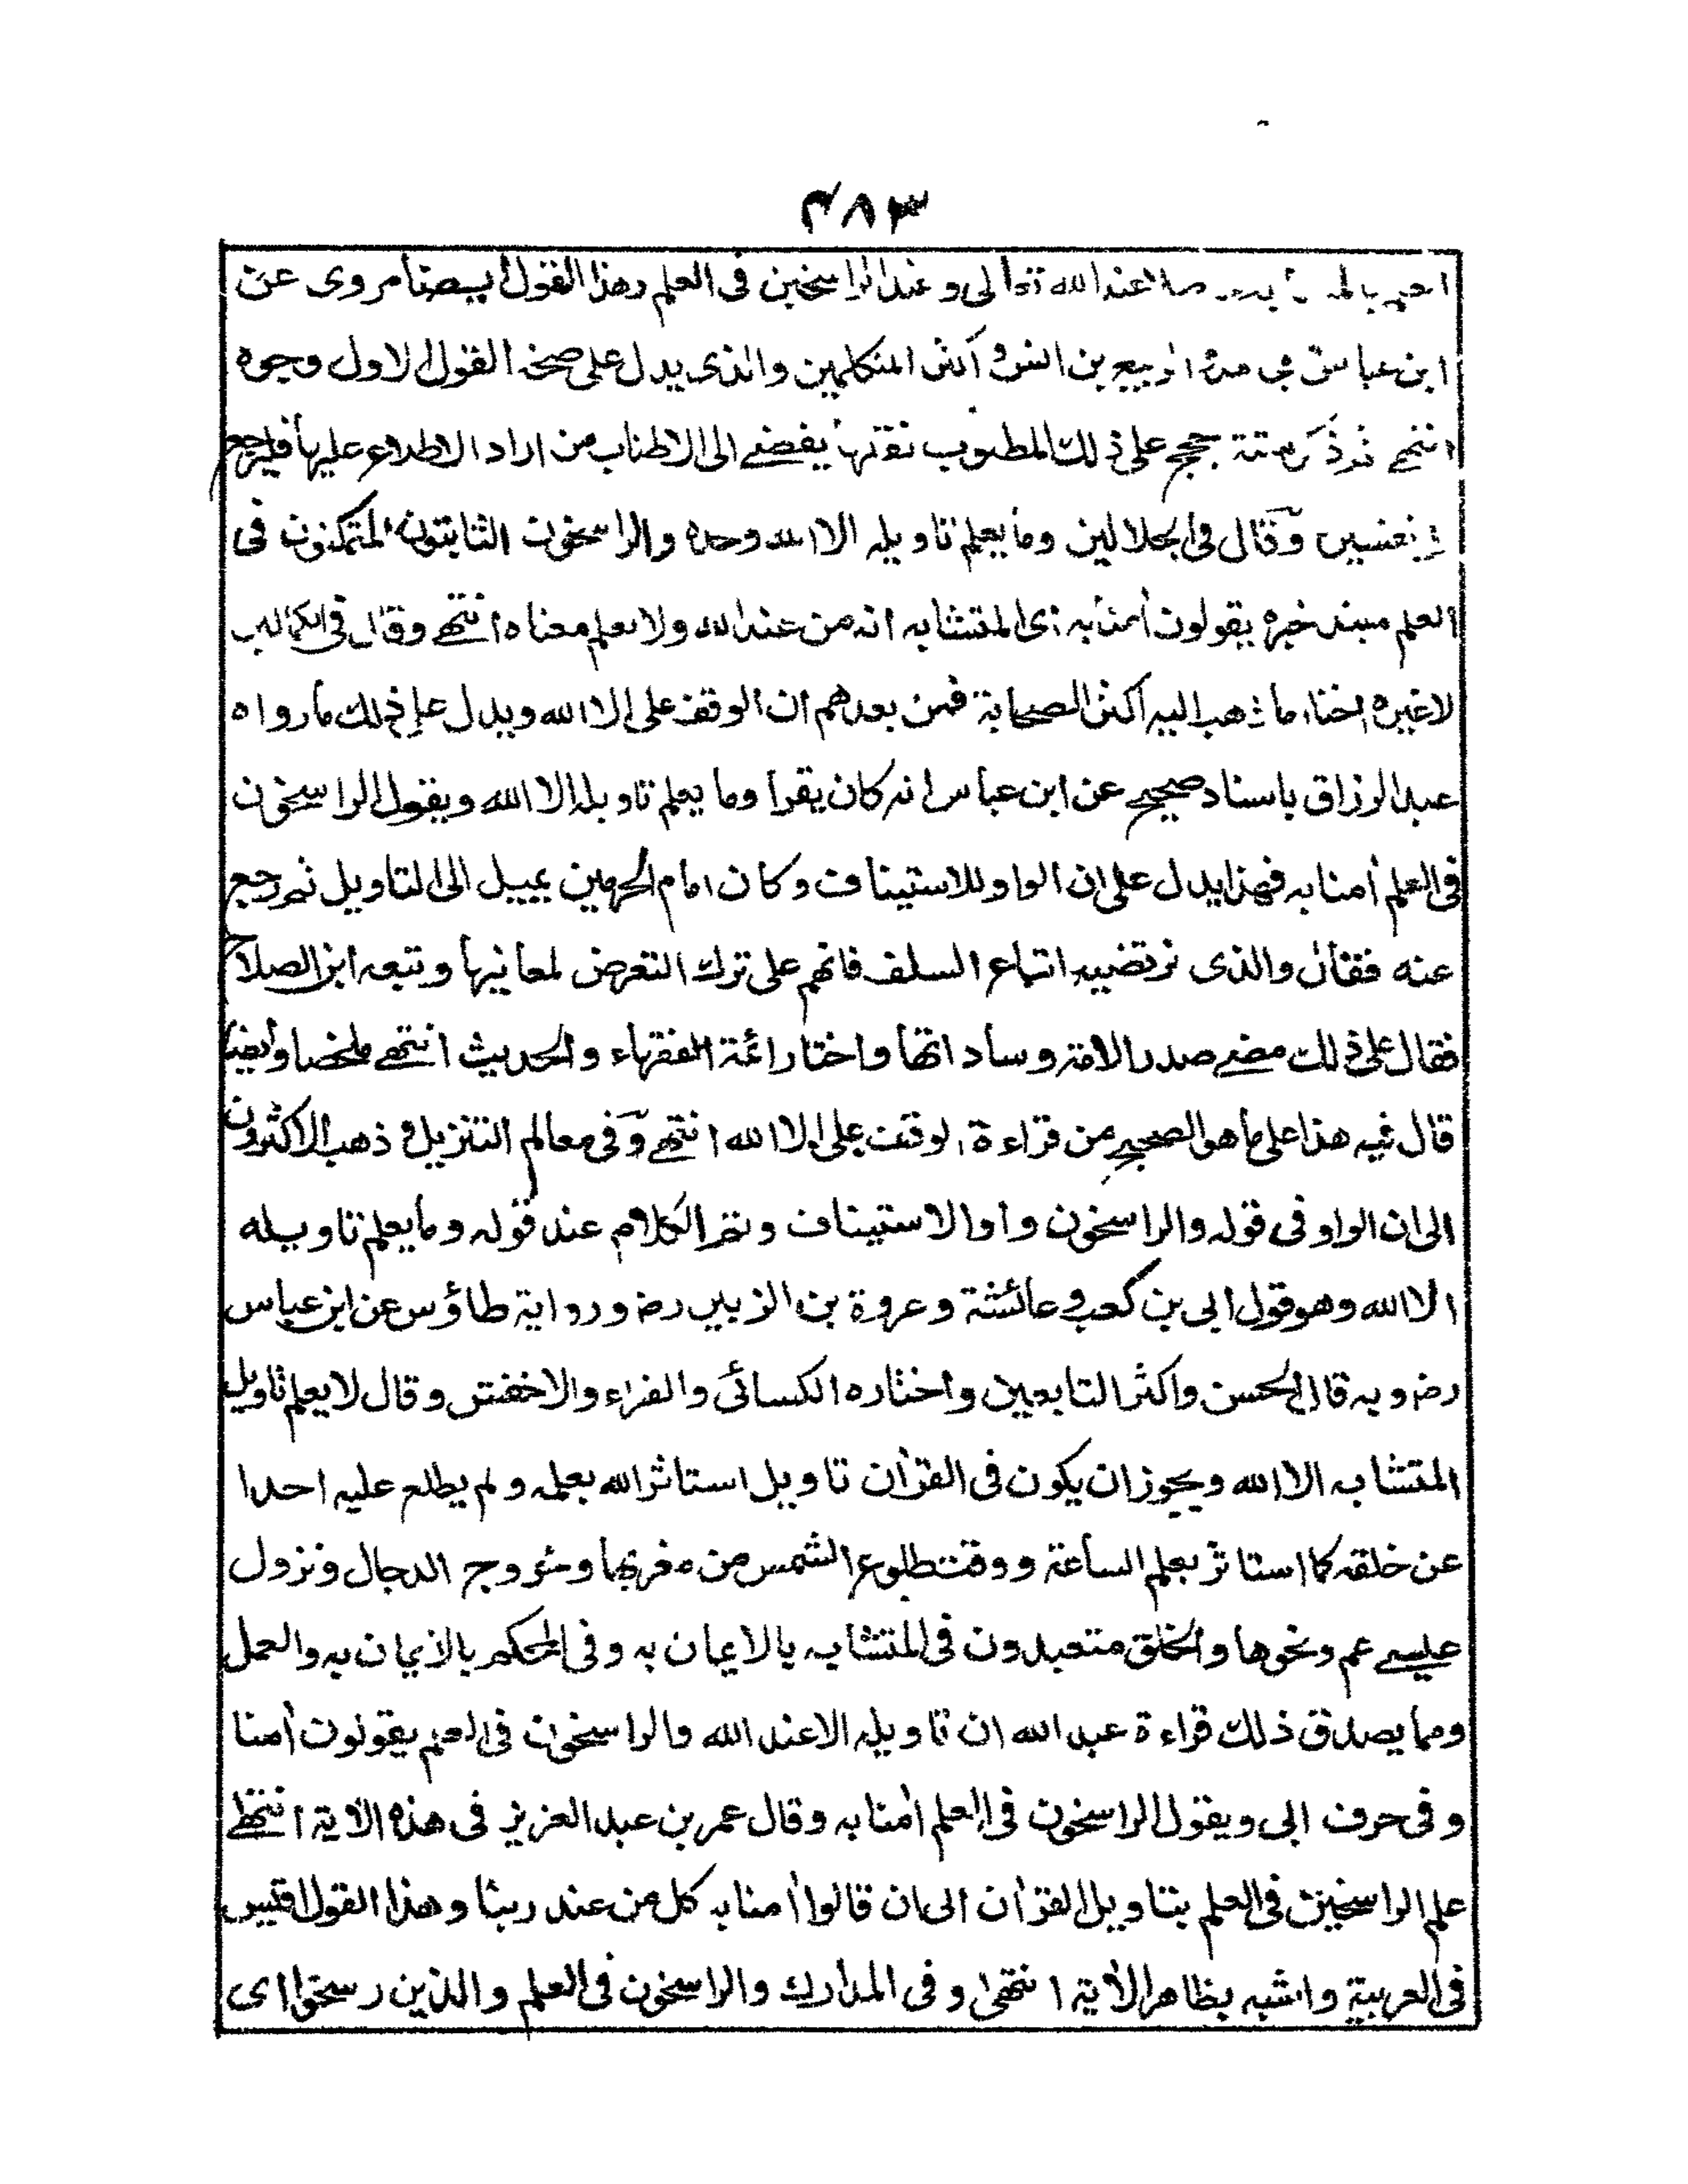 ٤٨٣
عند الله تعالى وعند الراسخين فى العلم وهذا القول ايضا مروى عن
ابن عباس الربيع بن انس و اكثر المتكلمين والذى يدل على صحة القول الاول وجوه
حجج على ذلك المطلوب نقلها يفضى الى الاطناب من اراد الاطلاع عليها فليرجع
وقال فى الجلالين وما يعلم تاويله الا الله وحده والراسخون الثابتون المتمكنون فى
العلم مبتدا خبره يقولون أمنا به اى المتشابه انه من عند الله ولا نعلم معناه انتهى وقال فى الكمالين
لا غيره اختار ما ذهب اليه اكثر الصحابة فمن بعدهم ان الوقف على الا الله ويدل على ذلك ما رواه
عبد الرزاق باسناد صحيح عن ابن عباس انه كان يقرا وما يعلم تاويله الا الله ويقول الراسخون
فى العلم أمنا به فهذا يدل على ان الواو للاستيناف وكان امام الحرمين يميل الى التاويل ثم رجع
عنه فقال والذى نرتضيه اتباع السلف فانهم على ترك التعرض لمعانيها وتبعه ابن الصلاح
فقال على ذلك مضى صدر الامة وساداتها واختار ائمة الفقهاء والحديث انتهى ملخصا وايضا
قال فيه هذا على ما هو الصحيح من قراءة الوقف على الا الله انتهى وفى معالم التنزيل و ذهب الاكثرون
الى ان الواو فى قوله والراسخون واو الاستيناف وتم الكلام عند قوله وما يعلم تاويله
الا الله وهو قول ابى بن كعب و عائشة وعروة بن الزبير رض ورواية طاؤس عن ابن عباس
رض وبه قال الحسن واكثر التابعين واختاره الكسائى والفراء والاخفش وقال لا يعلم تاويل
المتشابه الا الله ويجوز ان يكون فى القرأن تاويل استاثر الله بعلمه ولم يطلع عليه احدا
عن خلقه كما استاثر بعلم الساعة ووقت طلوع الشمس من مغربها وخروج الدجال ونزول
عيسى عم ونحوها والخلق متعبدون فى المتشابه بالايمان به وفى المحكم بالايمان به والعمل
ومما يصدق ذلك قراءة عبد الله ان تاويله الا عند الله والراسخون فى العلم يقولون أمنا
وفى حرف ابى ويقول الراسخون فى العلم أمنا به وقال عمر بن عبد العزيز فى هذه الأية انتهى
علم الراسخين فى العلم بتاويل القرأن الى ان قالوا أمنا به كل من عند ربنا وهذا القول اقيس
فى العربية واشبه بظاهر الأية انتهى وفى المدارك والراسخون فى العلم والذين رسخوا اى